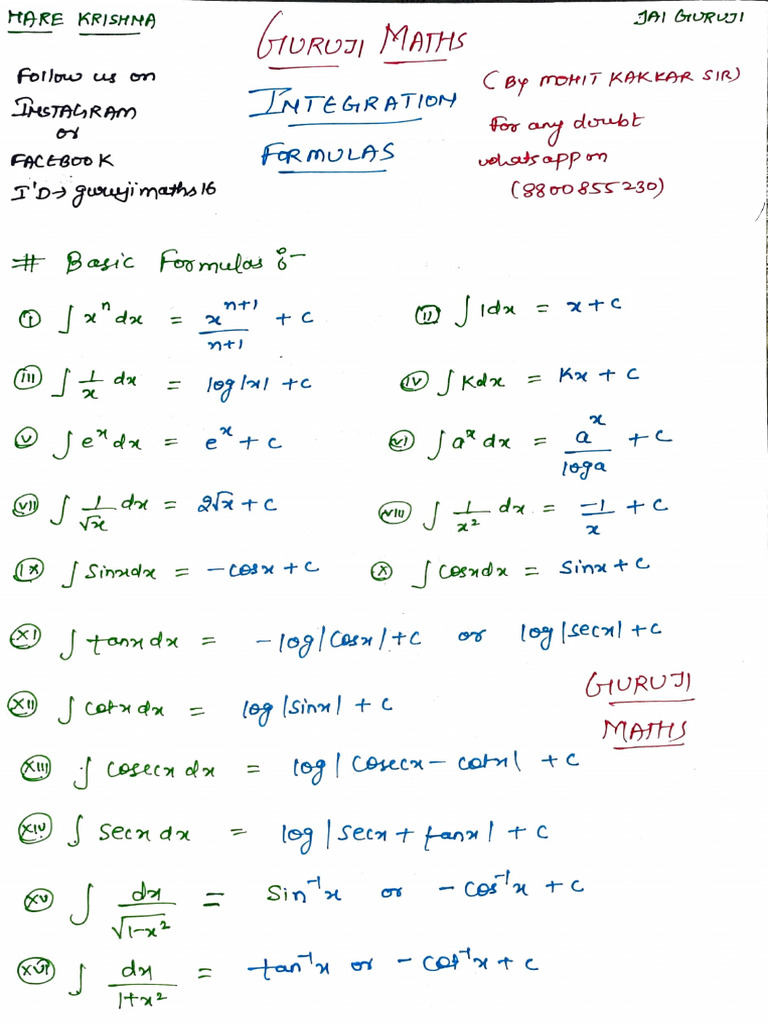 HARE KRISHNA
JAI GURUJI
GURUJI MATHS
Follow us on
INSTAGRAM
or
FACEBOOK
I'D→ gurujimaths16
INTEGRATION
FORMULAS
(By MOHIT KAKKAR SIR)
For any doubt
whatsapp on
(8800855230)
# Basic Formulas :-
(i) ∫ xⁿ dx = xⁿ⁺¹/n+1 + c
(ii) ∫ 1dx = x + c
(iii) ∫ 1/x dx = log|x| + c
(iv) ∫ Kdx = Kx + c
(v) ∫ eˣ dx = eˣ + c
(vi) ∫ aˣ dx = aˣ/loga + c
(vii) ∫ 1/√x dx = 2√x + c
(viii) ∫ 1/x² dx = -1/x + c
(ix) ∫ Sinxdx = -cosx + c
(x) ∫ Cosxdx = Sinx + c
(xi) ∫ tanxdx = -log|Cosx| + c or log|secx| + c
(xii) ∫ cotxdx = log|sinx| + c
GURUJI
MATHS
(xiii) ∫ cosecx dx = log|Cosecx - cotx| + c
(xiv) ∫ secxdx = log|secx + tanx| + c
(xv) ∫ dx/√1-x² = Sin⁻¹x or -cos⁻¹x + c
(xvi) ∫ dx/1+x² = tan⁻¹x or -cot⁻¹x + c